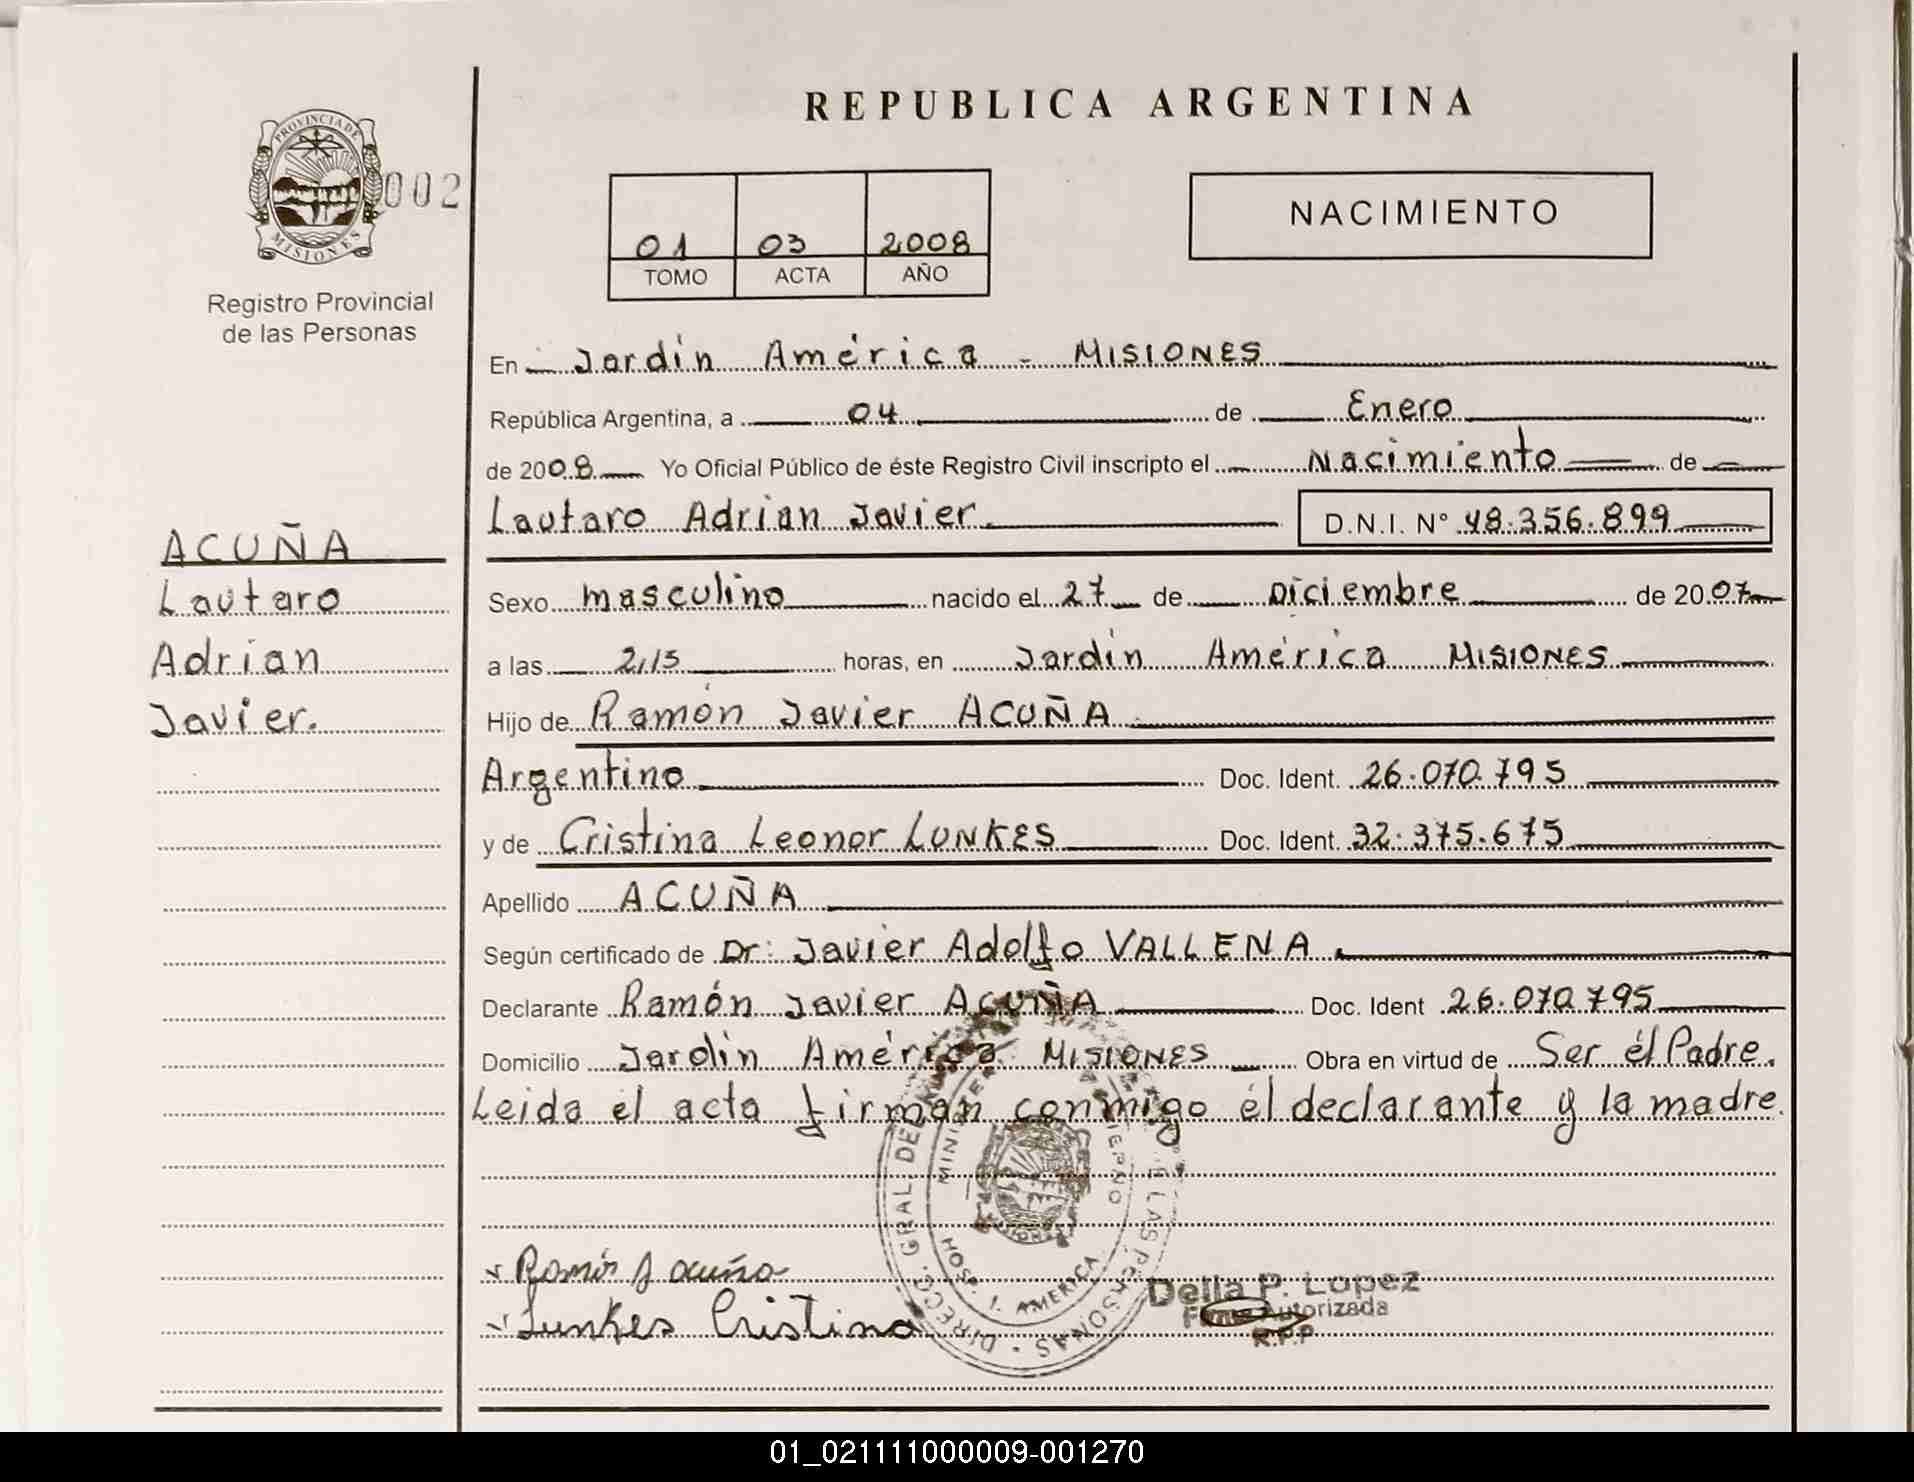 REPUBLICA ARGENTINA
PROVINCIA DE
MISIONES
002
Registro Provincial
de las Personas
01 03 2008
TOMO ACTA AÑO
NACIMIENTO
ACUÑA
Lautaro
Adrian
Javier.
En Jardín América - MISIONES
República Argentina, a 04 de Enero
de 2008 Yo Oficial Público de éste Registro Civil inscripto el Nacimiento de
Lautaro Adrian Javier. D.N.I. N° 48.356.899
Sexo masculino nacido el 27 de Diciembre de 2007
a las 2,15 horas, en Jardín América MISIONES
Hijo de Ramón Javier ACUÑA
Argentino Doc. Ident. 26.070.795
y de Cristina Leonor LUNKES Doc. Ident. 32.375.675
Apellido ACUÑA
Según certificado de Dr: Javier Adolfo VALLENA
Declarante Ramón Javier ACUÑA Doc. Ident 26.070.795
Domicilio Jardín América MISIONES Obra en virtud de Ser él Padre.
Leida el acta firman conmigo él declarante y la madre.
Ramón J acuña
Lunkes Cristina
DIRECC. GRAL DEL LAS PERSONAS
HOSP. J. AMERICA
Delia P. Lopez
Firma Autorizada
R.P.P
01_021111000009-001270